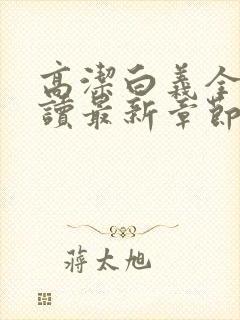 高潔白義全
讀最新章節
蔣太旭